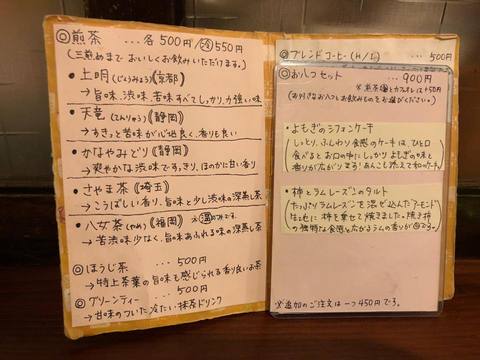 ◎煎茶 ... 各500円/冷550円
(三煎めまでおいしくお飲みいただけます。)
・上明(じょうみょう)《京都》
→旨味、渋味、苦味すべてしっかり、力強い味
・天竜(てんりゅう)《静岡》
→すきっと苦味が心地良く、香りも良い
・かなやみどり《静岡》
→爽やかな渋味ですっきり、ほのかに甘い香り
・さやま茶《埼玉》
→こうばしい香り、旨味と少し渋味の深蒸し茶
・八女茶(やめ)《福岡》※温のみです。
→苦渋味少なく、旨味あふれる味の深蒸し茶
◎ほうじ茶 ... 500円
→特上茶葉の旨味も感じられる香り良いお茶
◎グリーンティー ... 500円
→甘味のついた冷たい抹茶ドリンク
◎ブレンドコーヒー(H/I) ... 500円
◎おやつセット ... 900円
※煎茶冷とカフェオレは+50円
(お好きなおやつとお飲みものをお選びください。)
・よもぎのシフォンケーキ
しっとり、ふんわり食感のケーキは、ひと口
食べるとお口の中にしっかりよもぎの味と
香りが広がります!あんこも添えて和のケーキ。
・柿とラムレーズンのタルト
たっぷりラムレーズンを混ぜ込んだアーモンド
生地に柿を乗せて焼きました。焼き柿
の独特な食感と広がるラムの香りが
です。
※追加のご注文は一つ450円です。